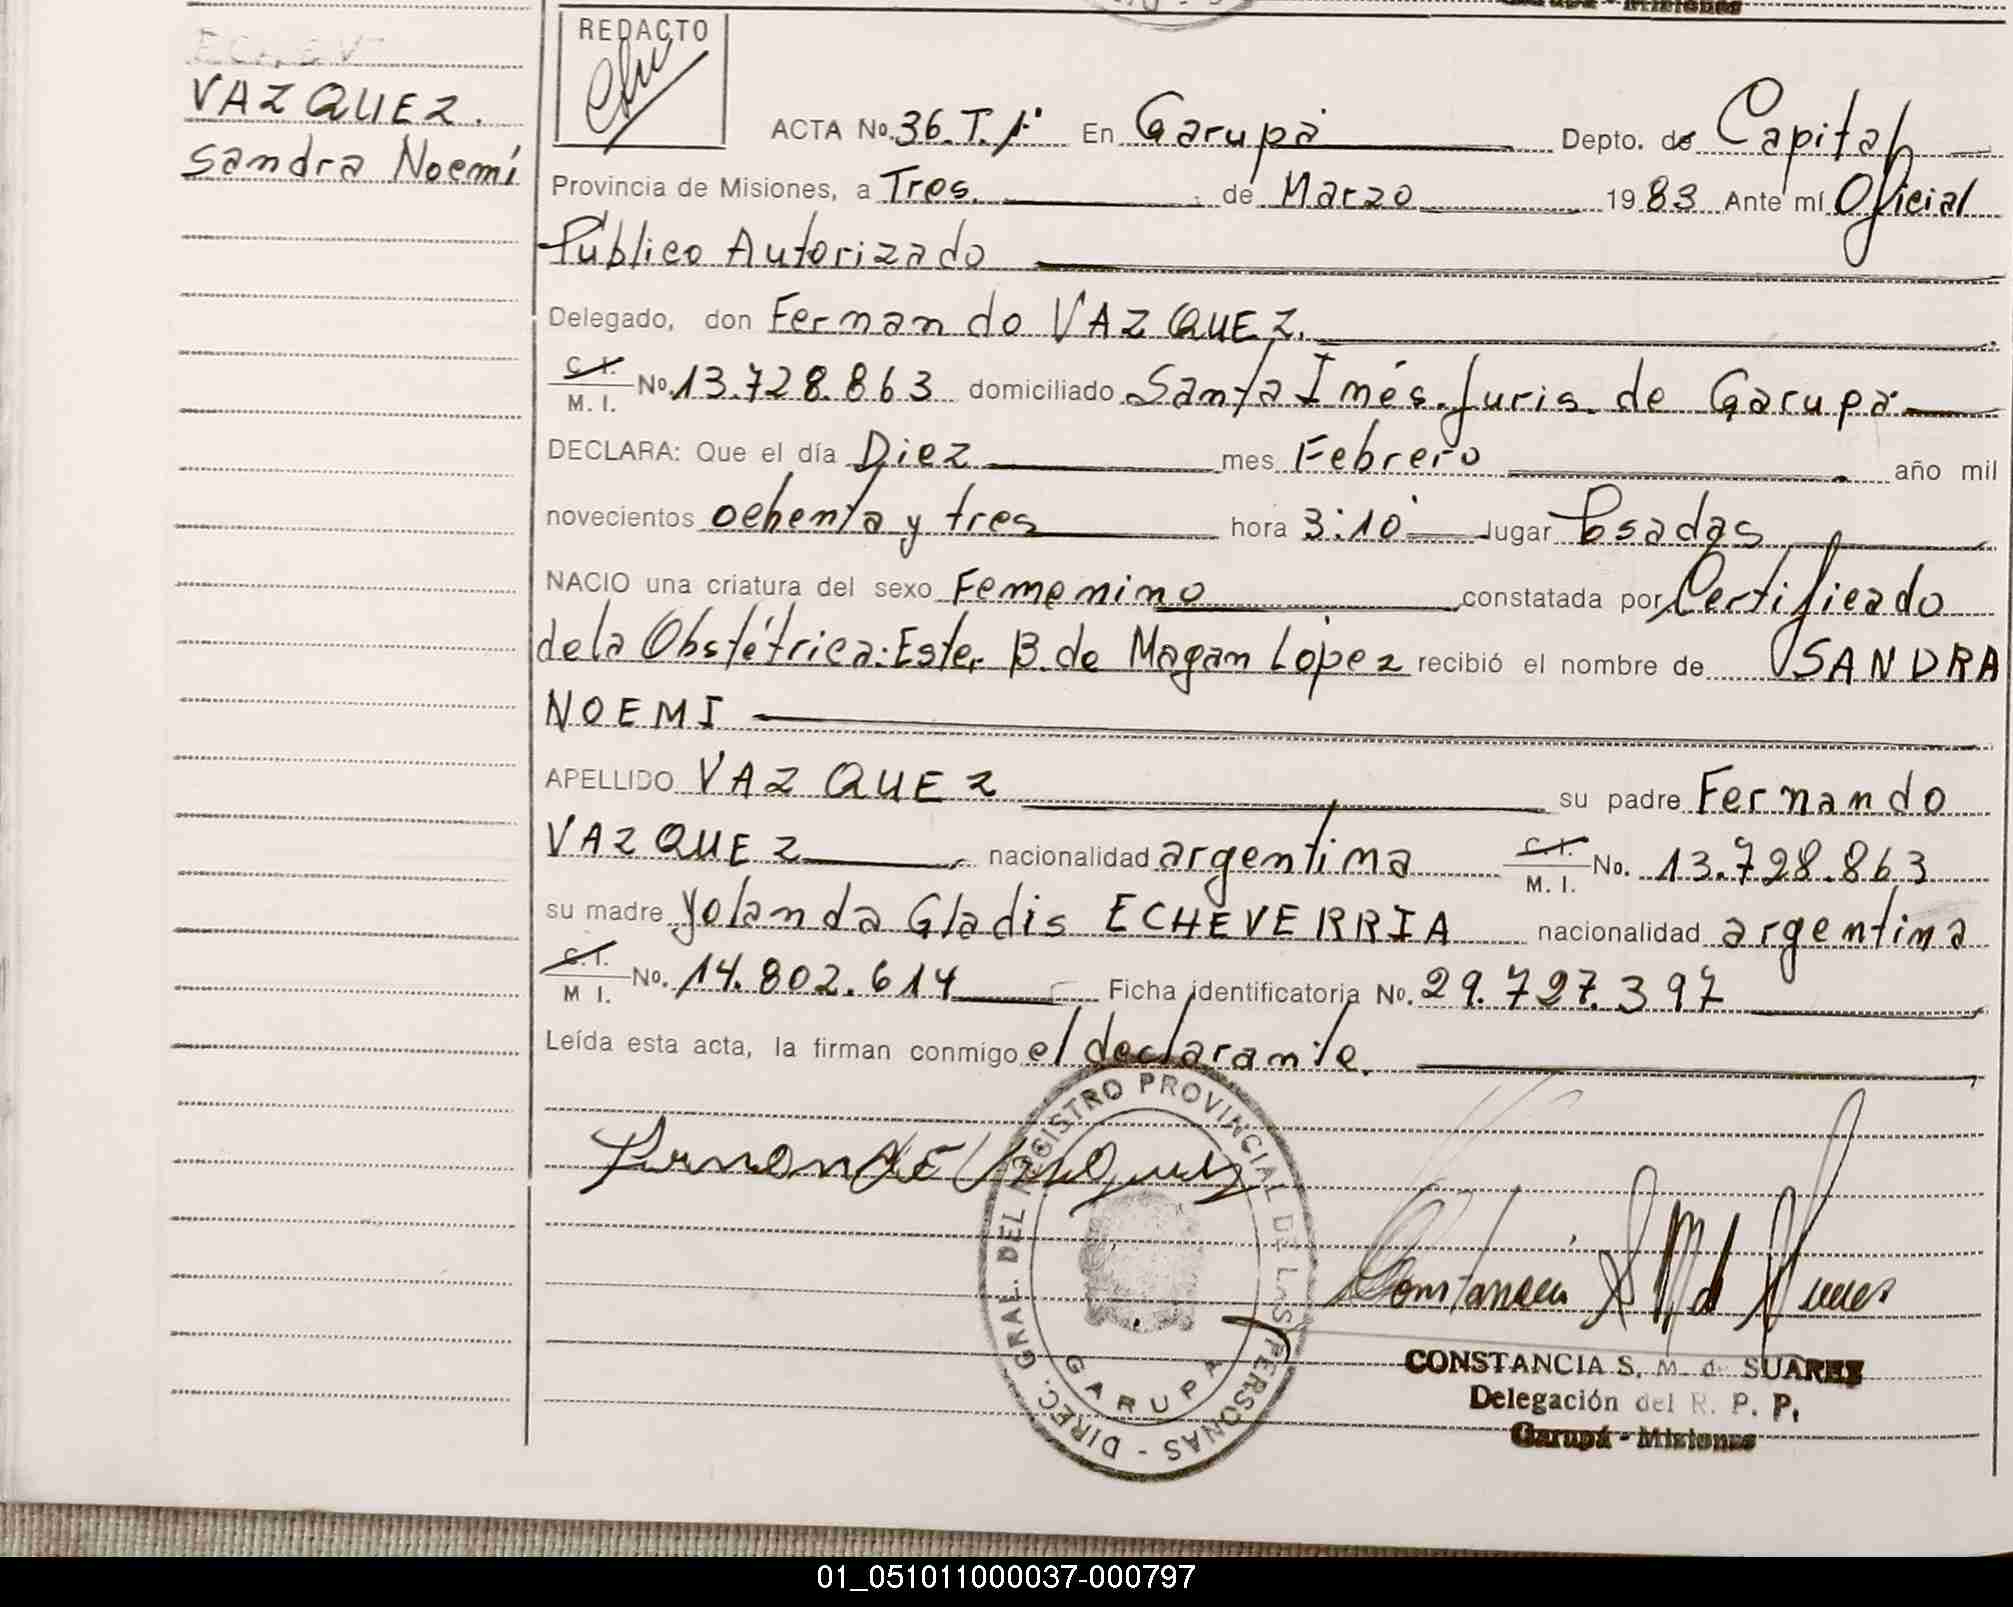 Garupá - Misiones
VAZQUEZ.
Sandra Noemí
REDACTO
ACTA No. 36. T. 1º En Garupá Depto. de Capital
Provincia de Misiones, a Tres. de Marzo 1983 Ante mí Oficial
Público Autorizado
Delegado, don Fernando VAZQUEZ.
C. I. M. I. No. 13.728.863 domiciliado Santa Inés. Juris. de Garupá
DECLARA: Que el día Diez mes Febrero año mil
novecientos ochenta y tres hora 3:10 lugar Posadas
NACIO una criatura del sexo Femenino constatada por Certificado
de la Obstétrica: Ester B. de Magan Lopez recibió el nombre de SANDRA
NOEMI
APELLIDO VAZQUEZ su padre Fernando
VAZQUEZ nacionalidad argentina C. I. M. I. No. 13.728.863
su madre Yolanda Gladis ECHEVERRIA nacionalidad argentina
C. I. M I. No. 14.802.614 Ficha identificatoria No. 29.727.397
Leída esta acta, la firman conmigo el declarante.
DIREC. GRAL. DEL REGISTRO PROVINCIAL DE LAS PERSONAS -
GARUPA
CONSTANCIA S. M. de SUAREZ
Delegación del R. P. P.
Garupá - Misiones
01_051011000037-000797